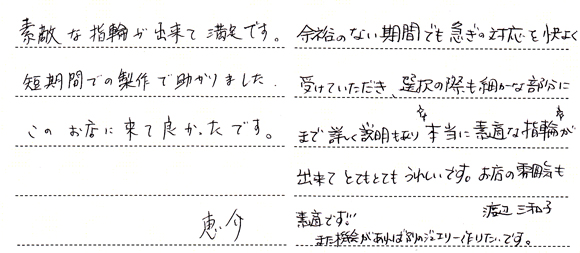 素敵な指輪が出来て満足です。
短期間での製作で助かりました。
このお店に来て良かったです。
恵介
余裕のない期間でも急ぎの対応を快よく
受けていただき、選択の際も細かな部分に
まで詳しく説明もあり本当に素適な指輪が
出来てとてもとてもうれしいです。お店の雰囲気も
素適です!!
渡辺 三和子
また機会があれば別のジュエリー作りたいです。